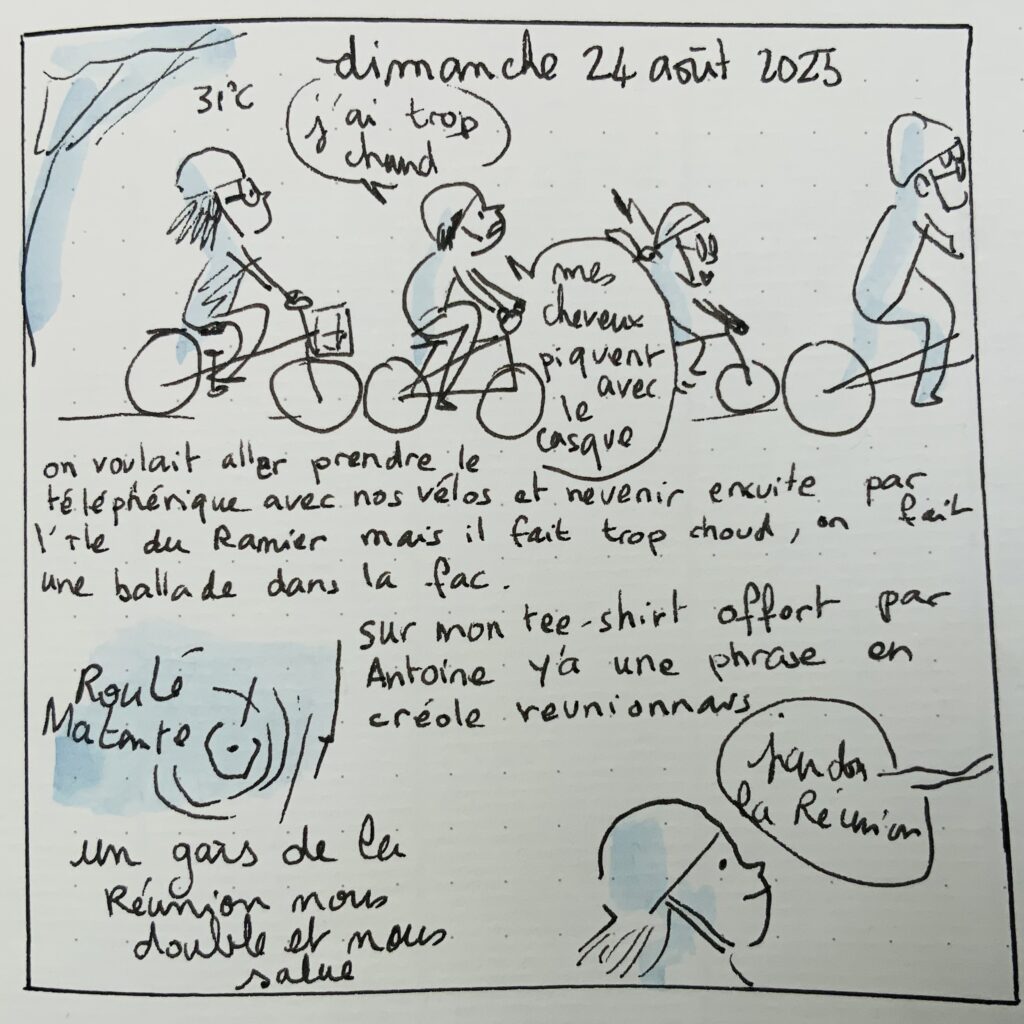 dimanche 24 août 2025
31°C
j'ai trop
chaud
mes
cheveux
piquent
avec
le
casque
on voulait aller prendre le
téléphérique avec nos vélos et revenir ensuite par
l'île du Ramier mais il fait trop chaud, on fait
une ballade dans la fac.
sur mon tee-shirt offert par
Antoine y'a une phrase en
créole reunionnais
Roulé
Matante
pardon
la Réunion
un gars de la
Réunion nous
double et nous
salue